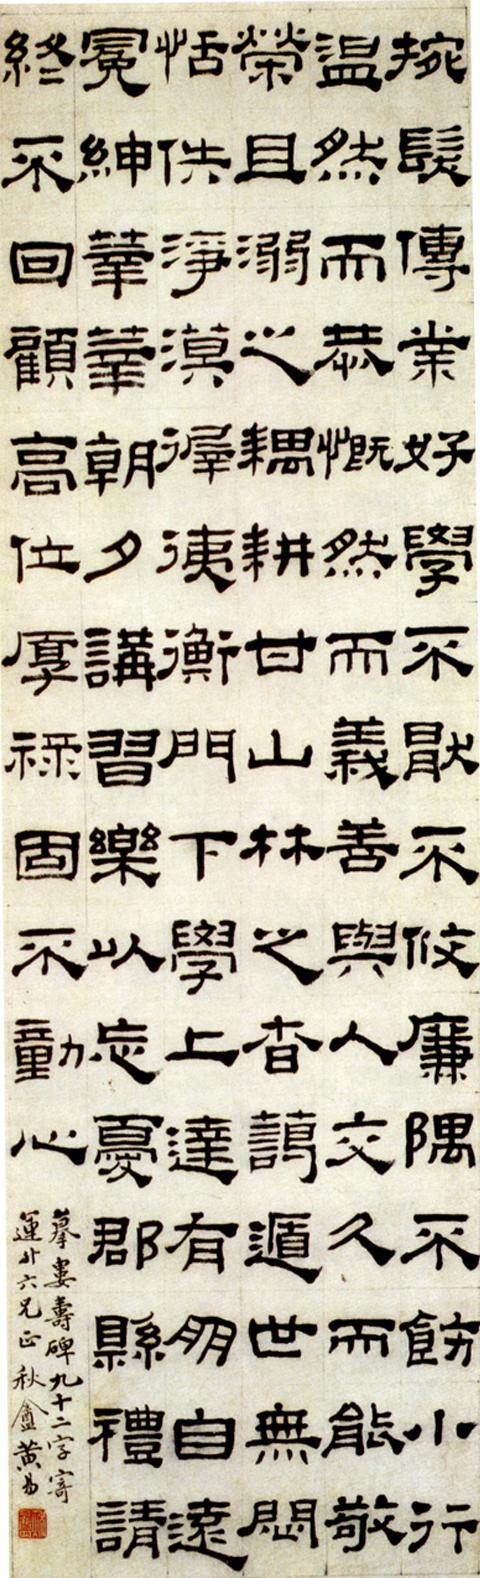 捥髮傳業好學不猒不攸廉隅不飭小行
温然而恭慨然而義善與人交久而能敬
榮且溺之耦耕甘山林之杳藹遁世無悶
恬佚淨漠徲徥衡門下學上達有朋自遠
冕紳莘莘朝夕講習樂以忘憂郡縣禮請
終不回顧高位厚祿固不動心
摹婁壽碑九十二字寄
運廿六兄正 秋盦黃易